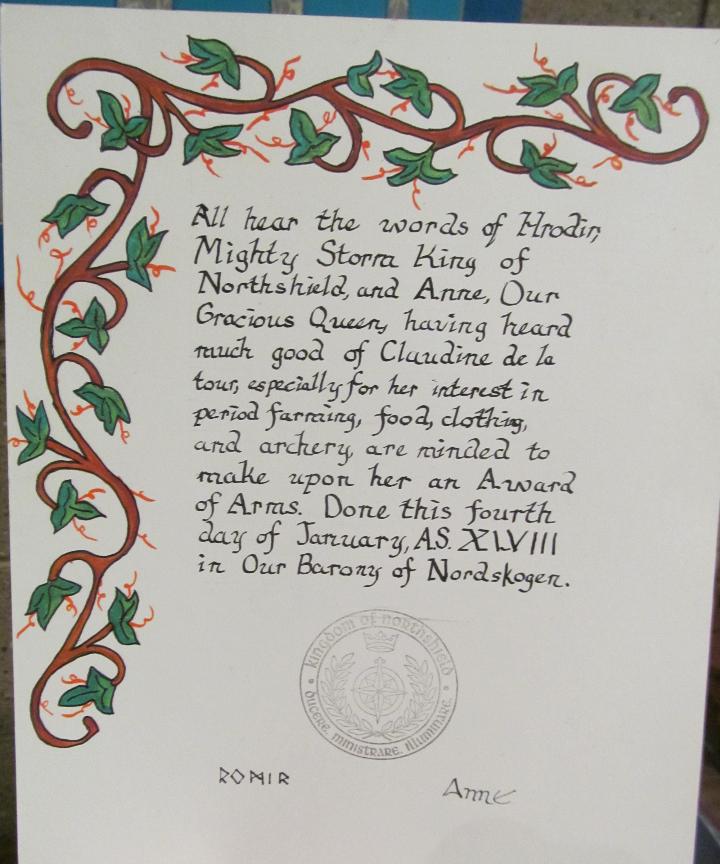 All hear the words of Hrodir,
Mighty Storm King of
Northshield, and Anne, Our
Gracious Queen, having heard
much good of Claudine de la
tour, especially for her interest in
period farming, food, clothing,
and archery, are minded to
make upon her an Award
of Arms. Done this fourth
day of January, AS. XLVIII
in Our Barony of Nordskogen.
kingdom of northshield
ducere, ministrare, illuminare.
Anne